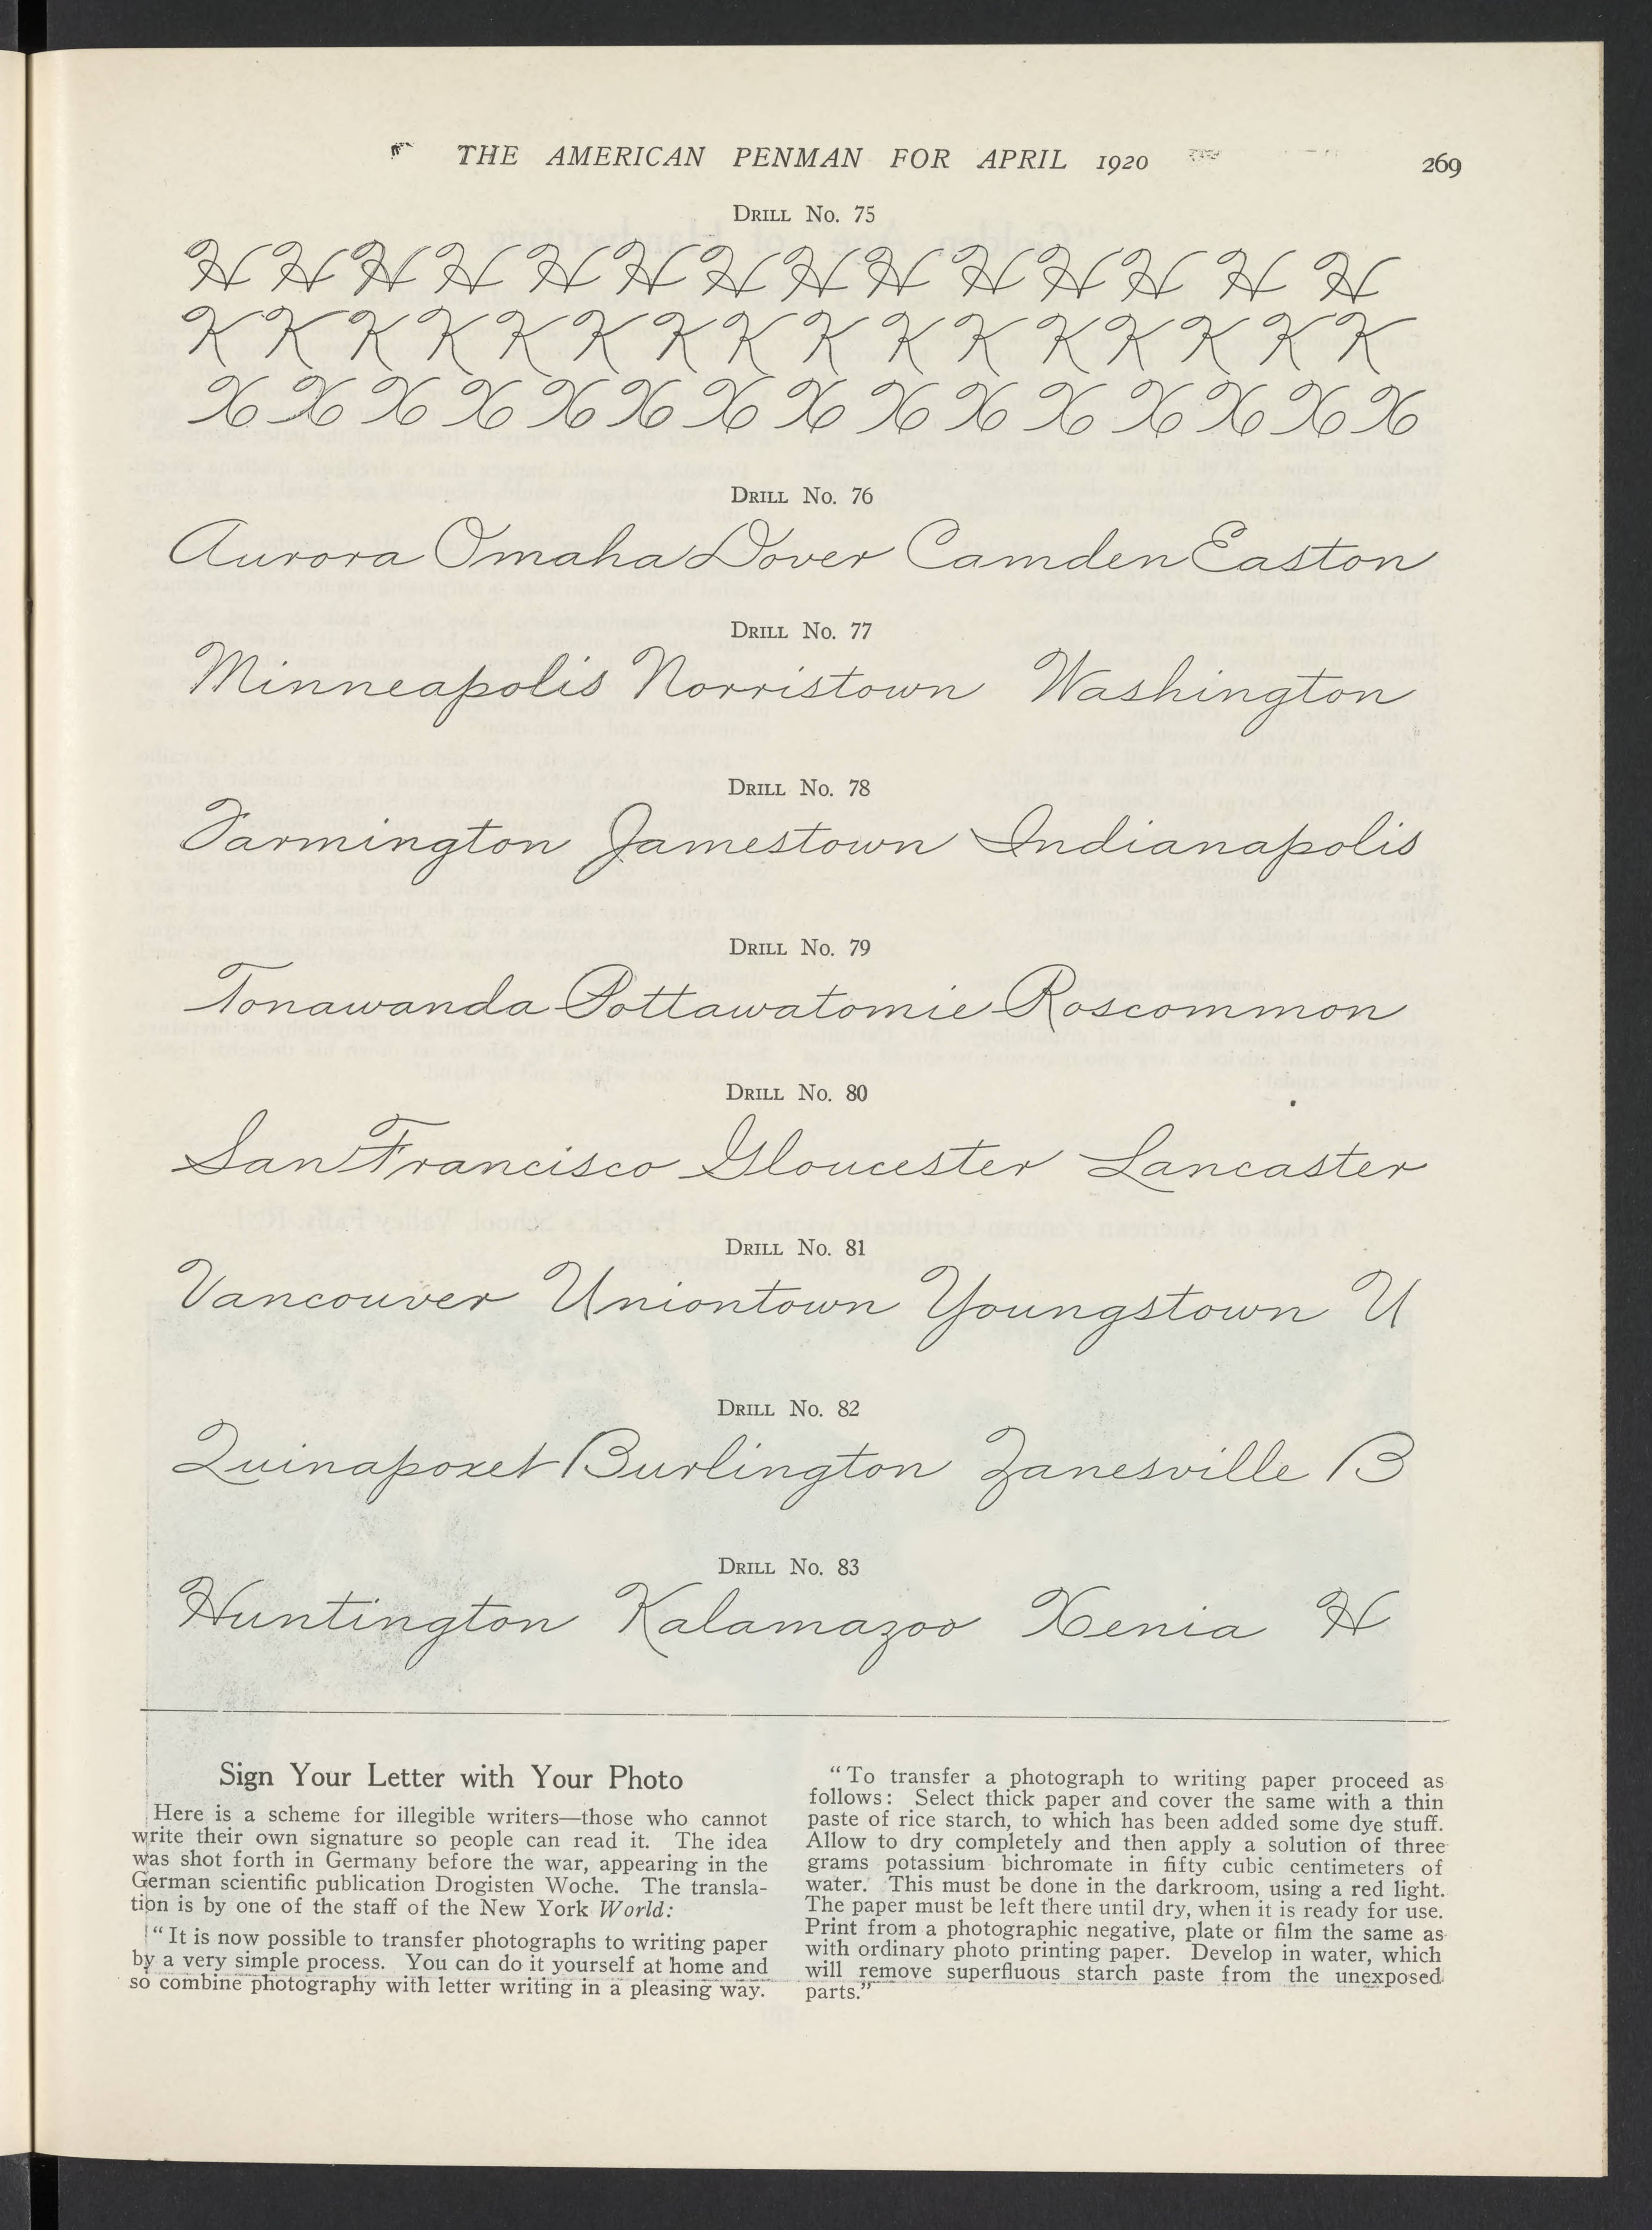 THE AMERICAN PENMAN FOR APRIL 1920 269
DRILL No. 75
H H H H H H H H H H H H H H
K K K K K K K K K K K K K K K K
X X X X X X X X X X X X X X X
DRILL No. 76
Aurora Omaha Dover Camden Easton
DRILL No. 77
Minneapolis Norristown Washington
DRILL No. 78
Farmington Jamestown Indianapolis
DRILL No. 79
Tonawanda Pottawatomie Roscommon
DRILL No. 80
San Francisco Gloucester Lancaster
DRILL No. 81
Vancouver Uniontown Youngstown U
DRILL No. 82
Quinapoxet Burlington Zanesville B
DRILL No. 83
Huntington Kalamazoo Xenia H
Sign Your Letter with Your Photo
Here is a scheme for illegible writers—those who cannot
write their own signature so people can read it. The idea
was shot forth in Germany before the war, appearing in the
German scientific publication Drogisten Woche. The transla-
tion is by one of the staff of the New York World:
“It is now possible to transfer photographs to writing paper
by a very simple process. You can do it yourself at home and
so combine photography with letter writing in a pleasing way.
“To transfer a photograph to writing paper proceed as
follows: Select thick paper and cover the same with a thin
paste of rice starch, to which has been added some dye stuff.
Allow to dry completely and then apply a solution of three
grams potassium bichromate in fifty cubic centimeters of
water. This must be done in the darkroom, using a red light.
The paper must be left there until dry, when it is ready for use.
Print from a photographic negative, plate or film the same as
with ordinary photo printing paper. Develop in water, which
will remove superfluous starch paste from the unexposed
parts.”